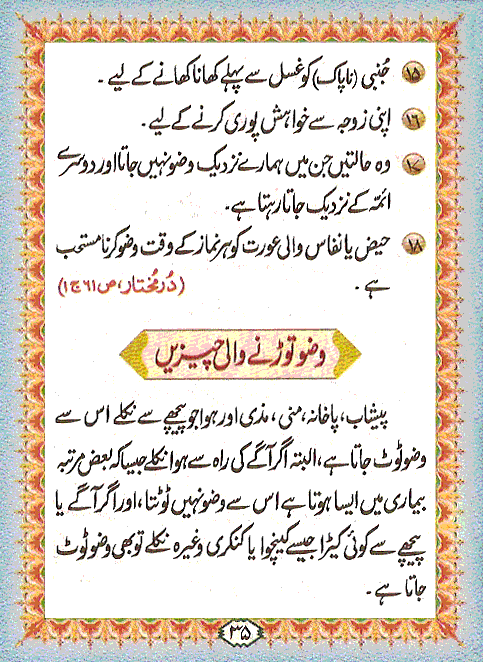 ۱۵ جُنبی (ناپاک) کو غسل سے پہلے کھانا کھانے کے لیے ۔
۱۶ اپنی زوجہ سے خواہش پوری کرنے کے لیے ۔
۱۷ وہ حالتیں جن میں ہمارے نزدیک وضو نہیں جاتا اور دوسرے
ائمّہ کے نزدیک جاتا رہتا ہے ۔
۱۸ حیض یا نفاس والی عورت کو ہر نماز کے وقت وضو کرنا مستحب
ہے ۔ (دُرمُختار، ص۶۱ ج۱)
وضو توڑنے والی چیزیں
پیشاب، پاخانہ، منی، مذی اور ہوا جو پیچھے سے نکلے اس سے
وضو ٹوٹ جاتا ہے، البتہ اگر آگے کی راہ سے ہوا نکلے جیسا کہ بعض مرتبہ
بیماری میں ایسا ہوتا ہے اس سے وضو نہیں ٹوٹتا، اور اگر آگے یا
پیچھے سے کوئی کیڑا جیسے کینچوا یا کنکری وغیرہ نکلے تو بھی وضو ٹوٹ
جاتا ہے ۔
۳۵